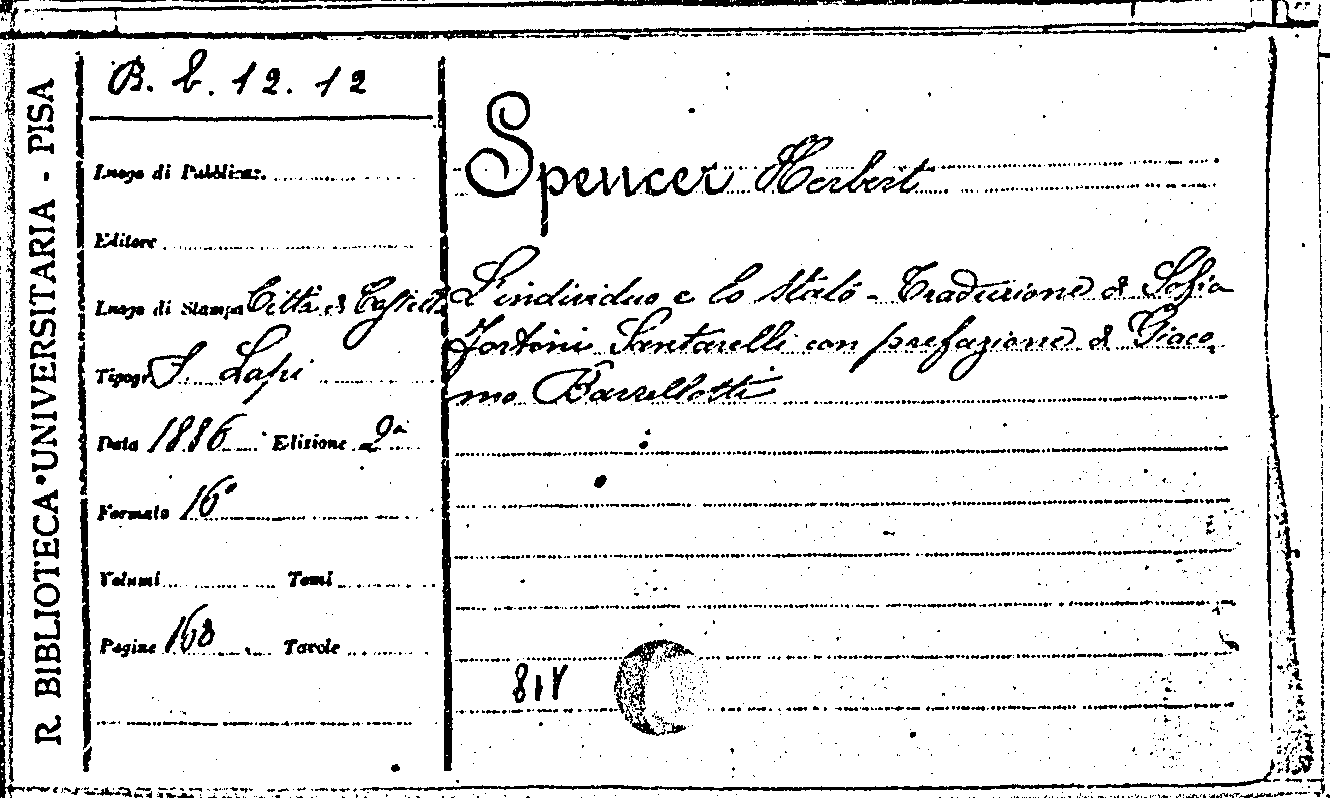 R. BIBLIOTECA UNIVERSITARIA - PISA
B. b. 12. 12
Luogo di Pubblicaz.
Editore
Luogo di Stampa Città di Castello
Tipogr. S. Lapi
Data 1886 Edizione 2a
Formato 16°
Volumi Tomi
Pagine 168 Tavole
Spencer Herbert
L'individuo e lo Stato - Traduzione di Sofia
Fortini Santarelli con prefazione di Giaco
mo Barzellotti